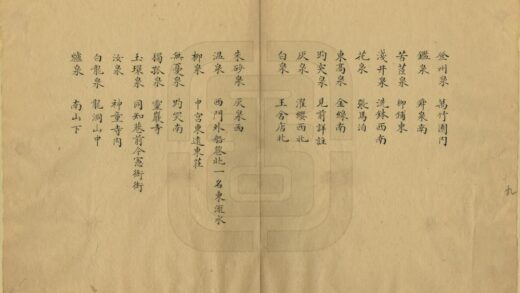 登州泉 萬竹園內
鑑泉 舜泉南
苦苣泉 柳舖東
淺井泉 洗鉢西南
花泉 張馬泊
東高泉 金線南
趵突泉 見前詳註
灰泉 濯纓西北
白泉 王舍店北
朱砂泉 灰泉西
溫泉 西門外 北一名東流水
柳泉 中宮東遠東莊
無憂泉 趵突南
獨孤泉 靈巖寺
玉環泉 同知巷前今憲衙街
汝泉 神童寺內
白龍泉 龍洞山中
爐泉 南山下
九